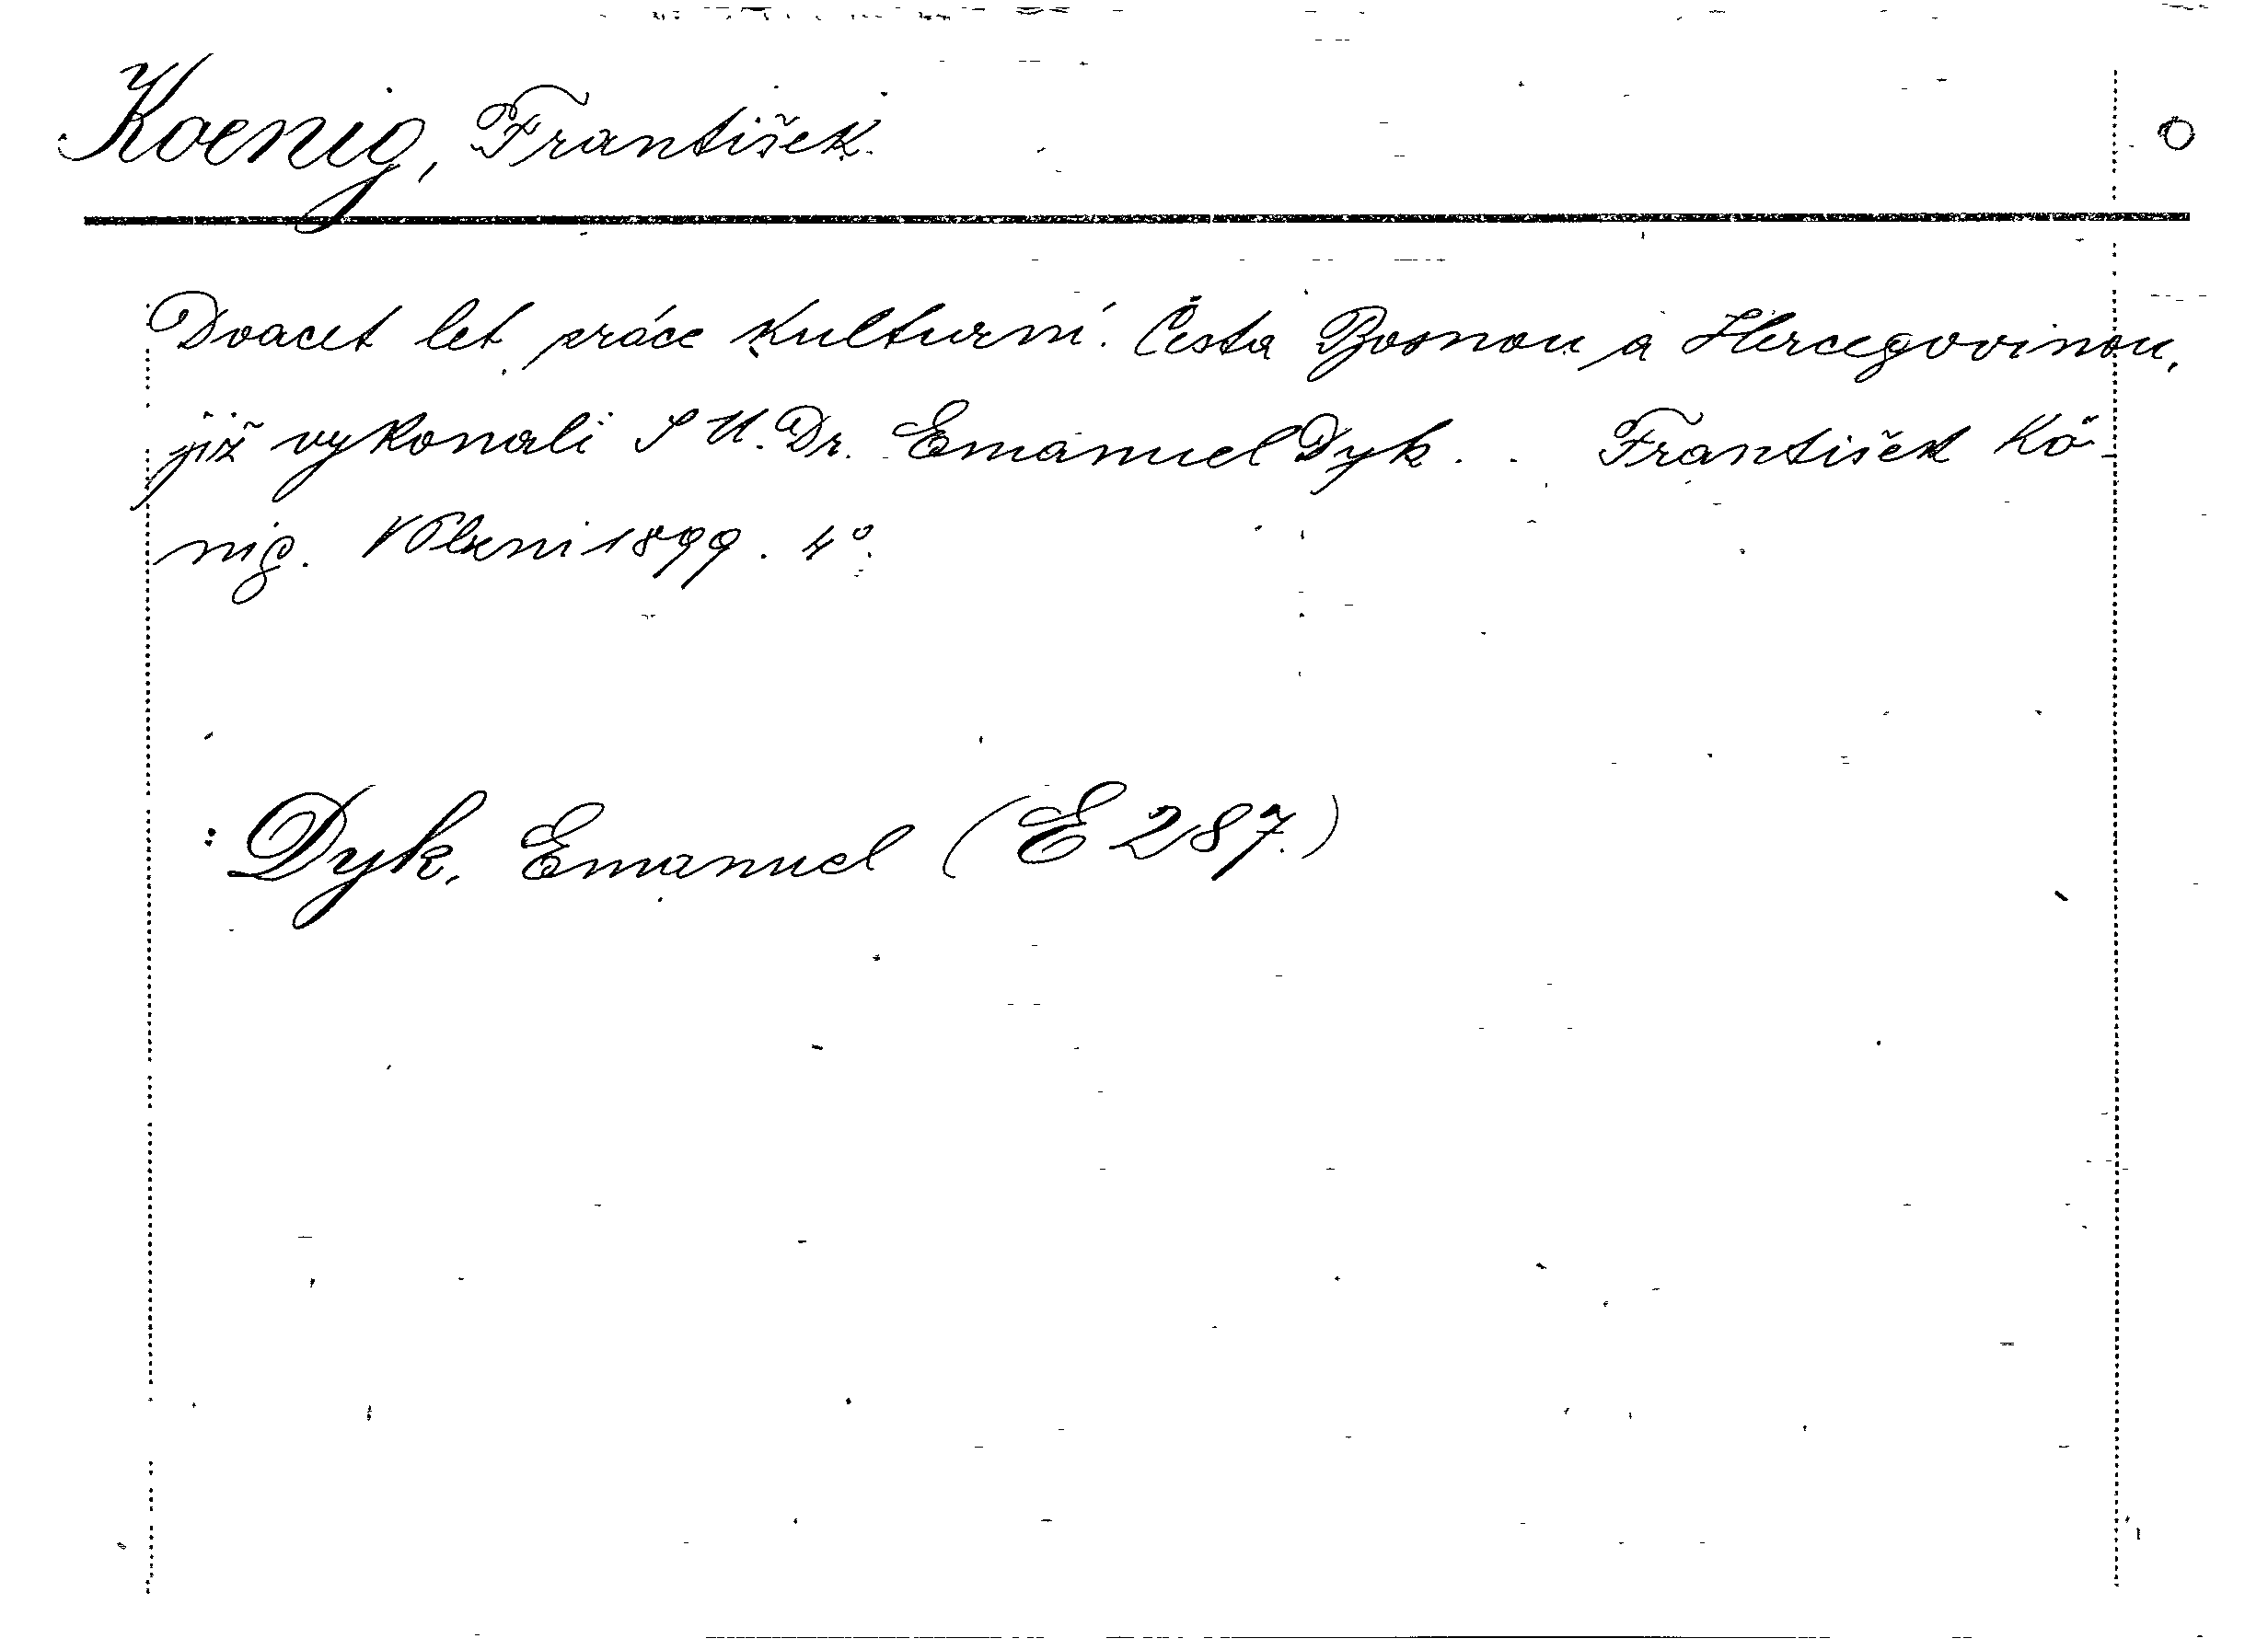 Koenig, František.
O
Dvacet let práce kulturní. Cesta Bosnou a Hercegovinou,
již vykonali J U. Dr. Emanuel Dyk . . František Kö-
nig. V Plzni 1899. 4°.
: Dyk, Emanuel (E 287.)